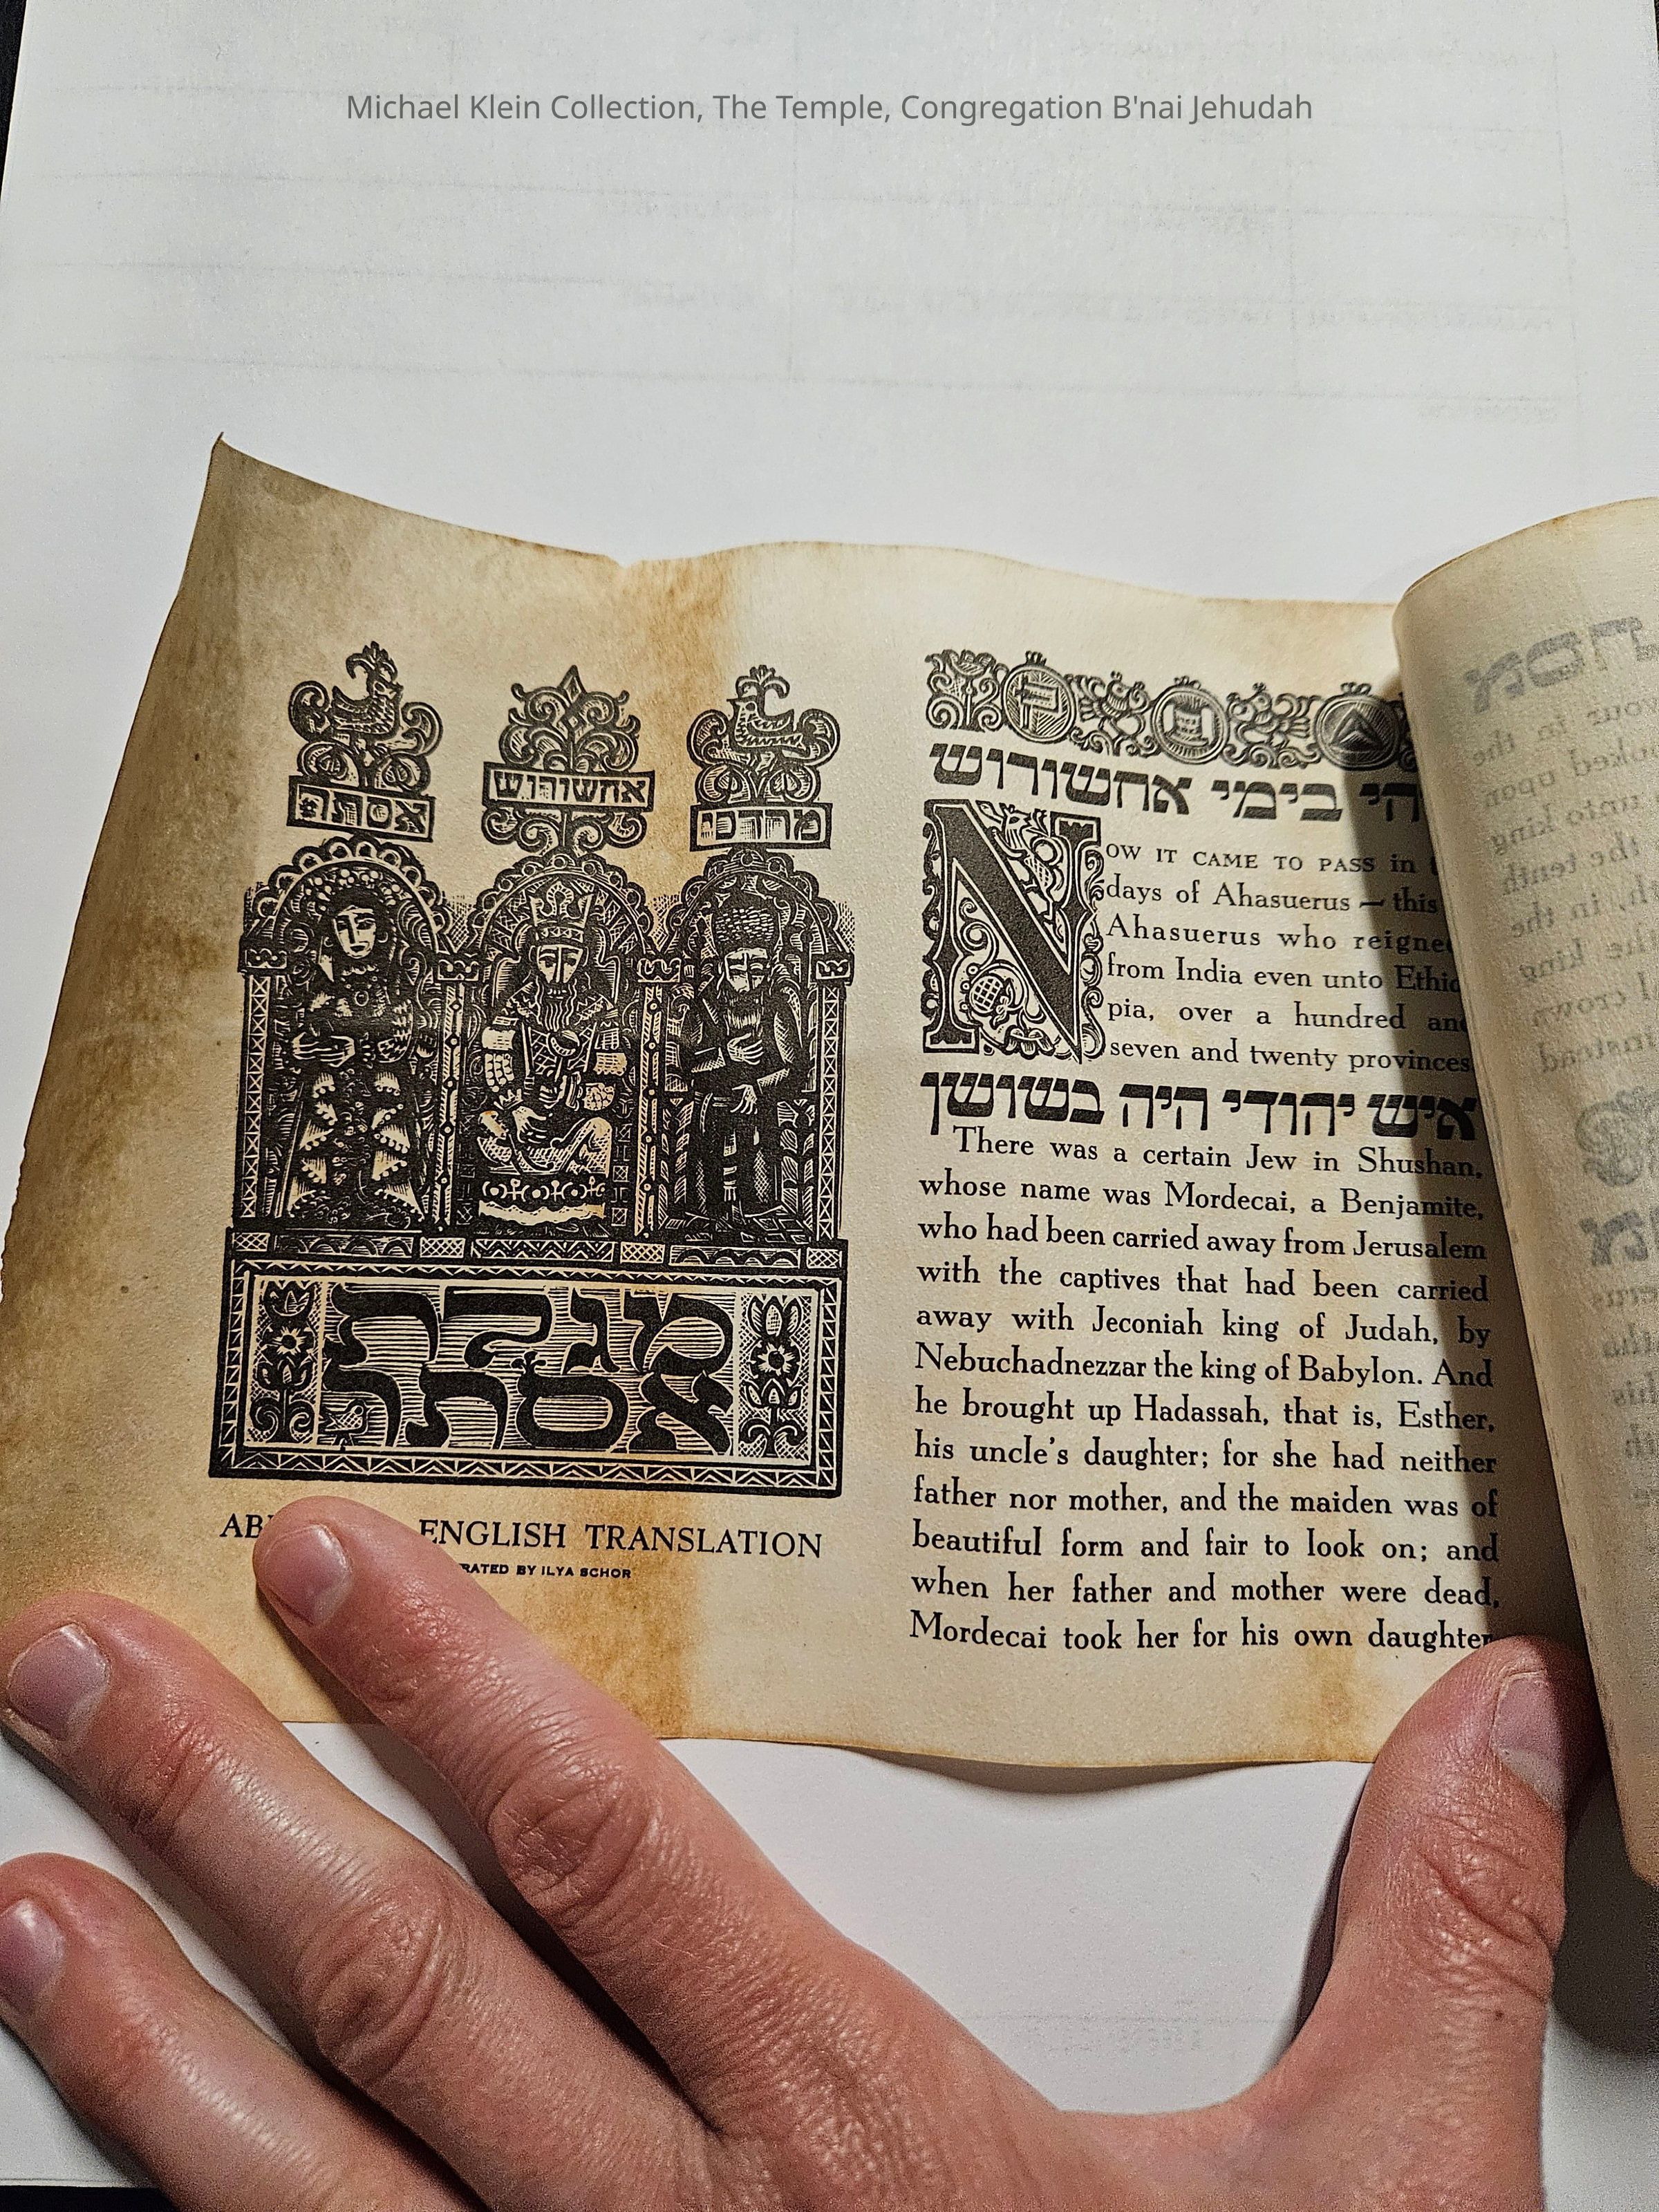 Michael Klein Collection, The Temple, Congregation B'nai Jehudah
אסתר
אחשורוש
מרדכי
מגלת
אסתר
ENGLISH TRANSLATION
BY ILYA SCHOR
בימי אחשורוש
NOW IT CAME TO PASS in
days of Ahasuerus — this
Ahasuerus who
from India even unto
pia, over a hundred and
seven and twenty provinces
איש יהודי היה בשושן
There was a certain Jew in Shushan,
whose name was Mordecai, a Benjamite,
who had been carried away from Jerusalem
with the captives that had been carried
away with Jeconiah king of Judah, by
Nebuchadnezzar the king of Babylon. And
he brought up Hadassah, that is, Esther,
his uncle's daughter; for she had neither
father nor mother, and the maiden was of
beautiful form and fair to look on; and
when her father and mother were dead,
Mordecai took her for his own daughter